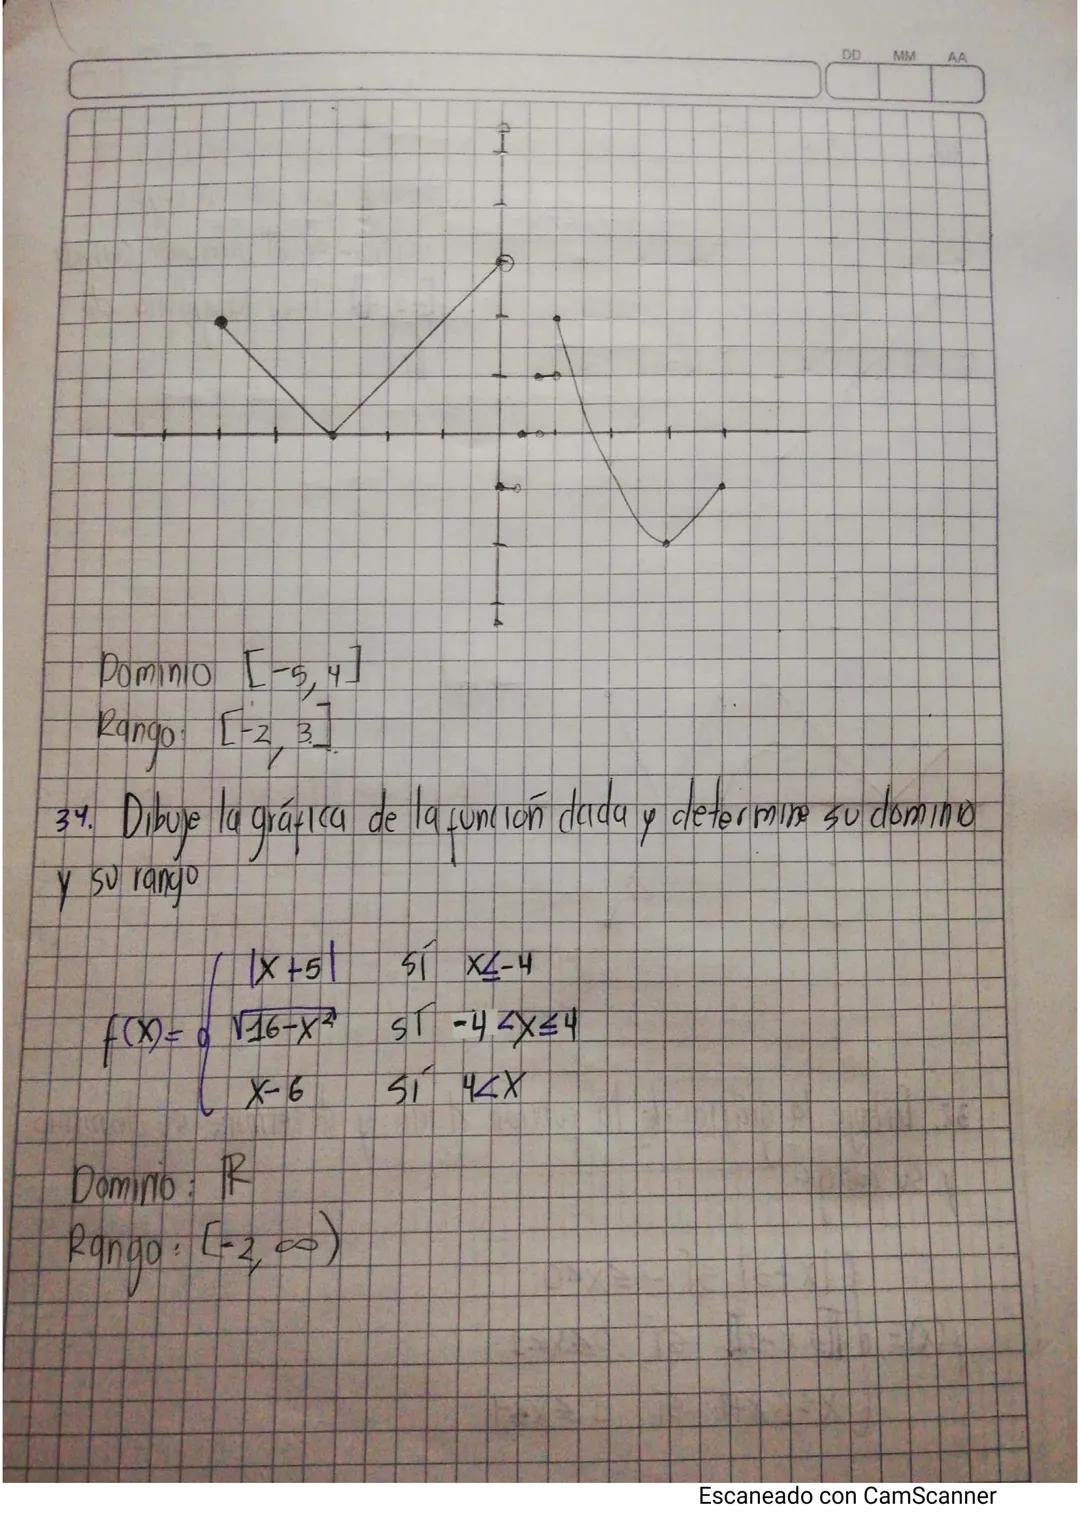 DD MM AA
Dominio [-5, 4]
Rango: [-2, 3]
34. Dibuje la gráfica de la función dada y determine su dominio
y su rango
|x+5| sí x≤-4
f(x)= √16-x² sí -4<x≤4
x-6 sí 4<x
Dominio: ℝ
Rango: [-2, ∞)
Escaneado con CamScanner